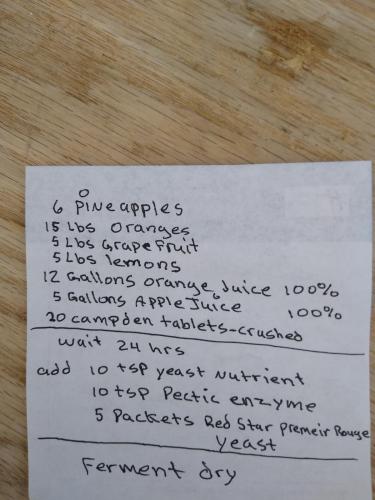 6 Pineapples
15 Lbs oranges
5 Lbs Grapefruit
5 Lbs lemons
12 Gallons orange Juice 100%
5 Gallons Apple Juice 100%
20 campden tablets-crushed
wait 24 hrs
add 10 tsp yeast Nutrient
10 tsp Pectic enzyme
5 Packets Red Star Premeir Rouge
yeast
Ferment dry